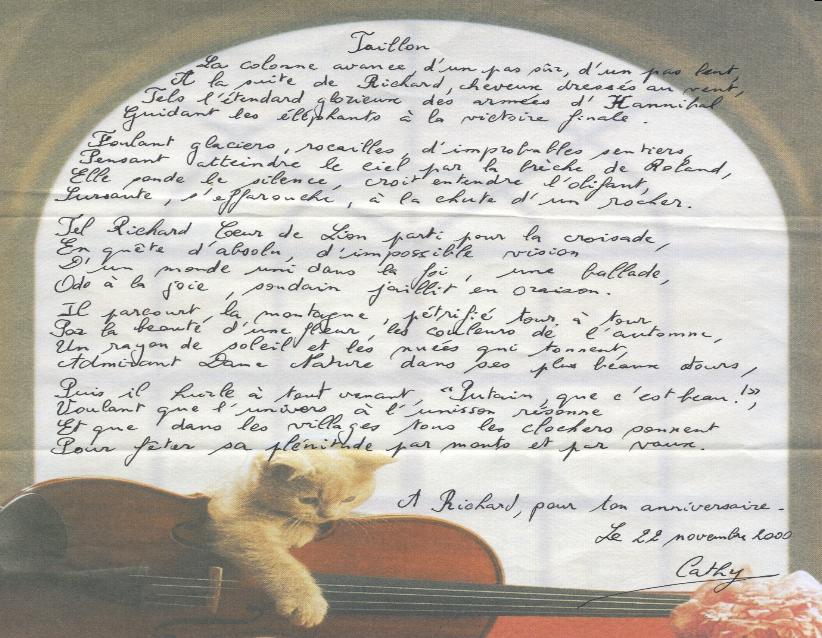 Taillon
La colonne avance d'un pas sûr, d'un pas lent,
A la suite de Richard, cheveux dressés au vent,
Tels l'étendard glorieux des armées d'Hannibal
Guidant les éléphants à la victoire finale.
Foulant glaciers, rocailles, d'improbables sentiers,
Pensant atteindre le ciel par la brèche de Roland,
Elle sonde le silence, croit entendre l'olifant,
Sursaute, s'effarouche, à la chute d'un rocher.
Tel Richard Cœur de Lion parti pour la croisade,
En quête d'absolu, d'impossible vision
D'un monde uni dans la foi, une ballade,
Ode à la joie, soudain jaillit en oraison.
Il parcourt la montagne, pétrifié tour à tour
Par la beauté d'une fleur, les couleurs de l'automne,
Un rayon de soleil et les nuées qui tonnent,
Admirant Dame Nature dans ses plus beaux atours,
Puis il hurle à tout venant, "Putain, que c'est beau!",
Voulant que l'univers à l'unisson résonne
Et que dans les villages tous les clochers sonnent
Pour fêter sa plénitude par monts et par vaux.
A Richard, pour ton anniversaire.
Le 22 novembre 2000
Cathy